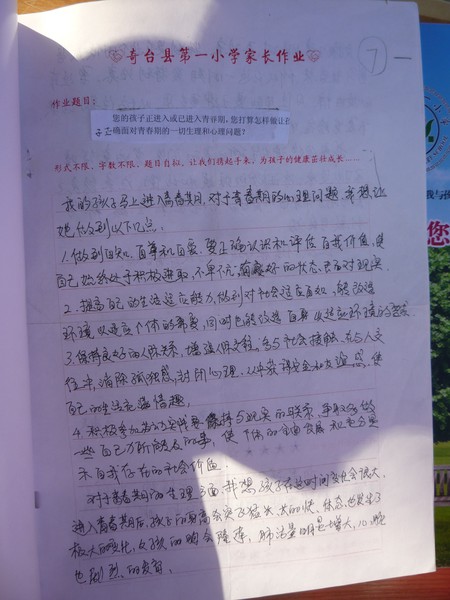 奇台县第一小学家长作业
7
作业题目：
您的孩子正进入或已进入青春期，您打算怎样做让
子正确面对青春期的一切生理和心理问题？
形式不限、字数不限、题目自拟，让我们携起手来，为孩子的健康茁壮成长……
我的孩子马上进入青春期，对于青春期的心理问题，我想让
她做到以下几点。
1.做到自知、自尊和自爱，要正确认识和评估自我价值，使
自己始终处于积极进取，不卑不亢，的状态去面对现实。
2.提高自己的生活适应能力，做到对社会适应自如，能改造
环境以适应个体的需要，同时也能改造自身以适应环境的需要
3.保持良好的人际关系，增进人际交往，多与社会接触，在与人交
往中，消除孤独感，封闭心理，从中获得安全和友谊感，使
自己的生活充满情趣。
4.积极参加社会实践要保持与现实的联系，争取多做
一些自己力所能及的事，使个体的全面发展和充分显
示自我存在的社会价值。
对于青春期的生理方面，我想孩子在这时间变化会很大，
进入青春期后，孩子的身高会突飞猛长，的快，体态，也发生了
极大的变化，女孩的胸会隆起，肺活量明显增大，心脏
也剧烈的发育。
您